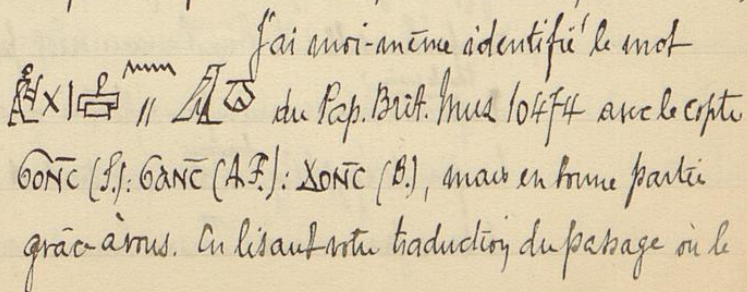 J'ai moi-même identifié le mot
du Pap. Brit. Mus 10474 avec le copte
ϭⲟⲛ̄ⲥ (S.): ϭⲁⲛ̄ⲥ (A.F.): ϫⲟⲛ̄ⲥ (B.), mais en bonne partie
grâce à vous. En lisant votre traduction du passage où le